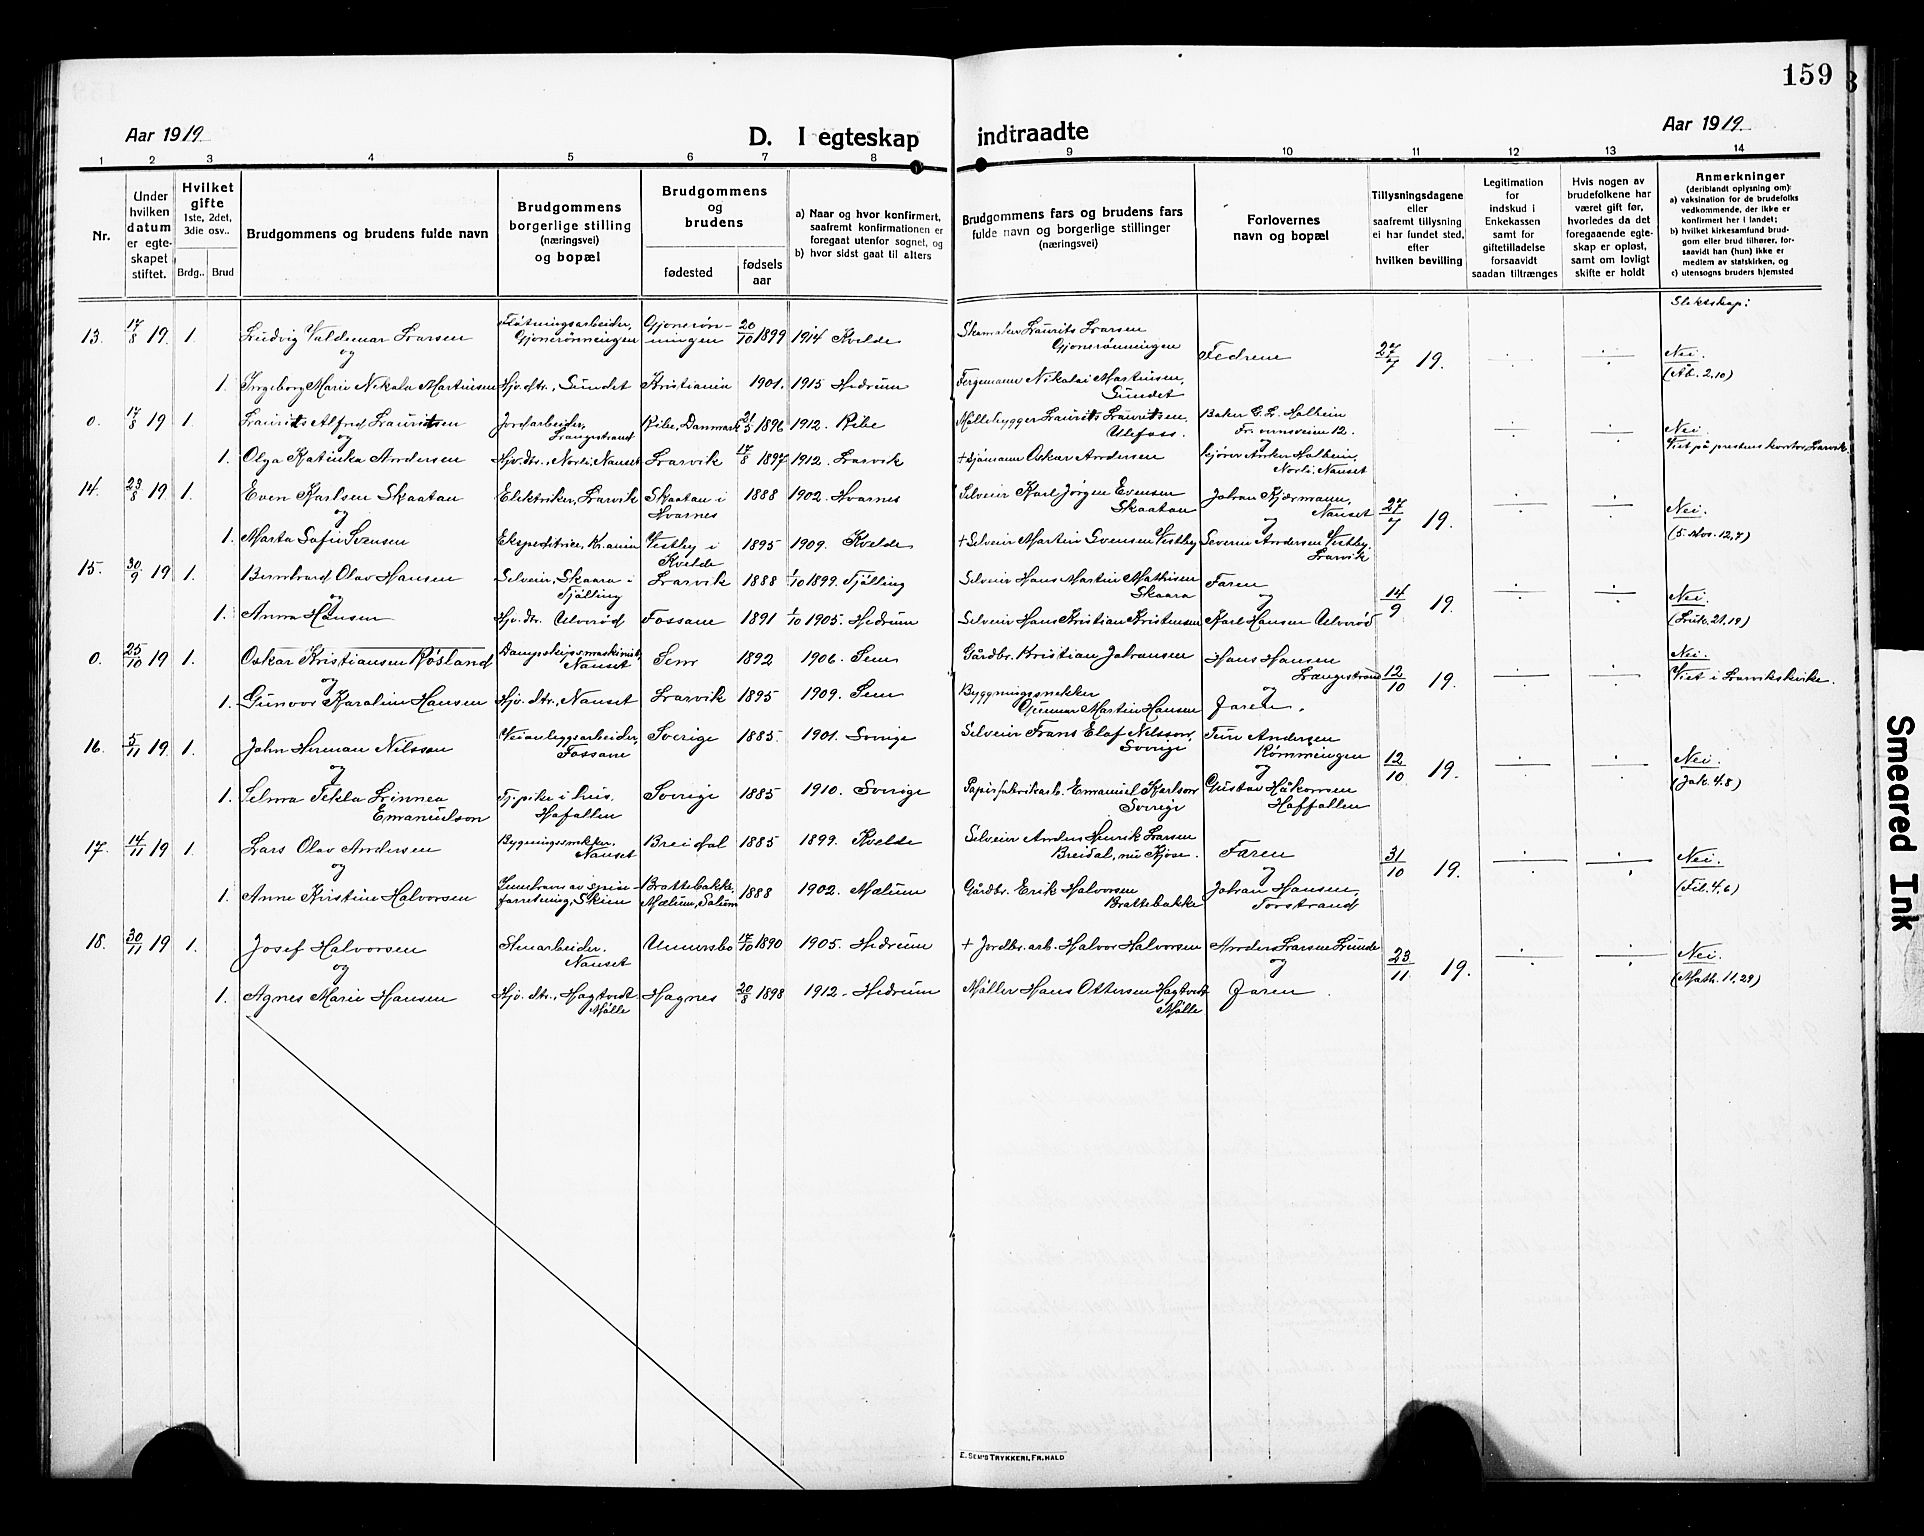 159
Aar 1919.
D. I egteskap
indtraadte
Aar 1919.
1 2 3 4 5 6 7 8 9 10 11 12 13 14
Nr.
Under hvilken datum er egteskapet stiftet.
Hvilket gifte 1ste, 2det, 3die osv..
Brdg.. Brud
Brudgommens og brudens fulde navn
Brudgommens borgerlige stilling (næringsvei) og bopæl
Brudgommens og brudens
fødested
fødsels aar
a) Naar og hvor konfirmert, saafremt konfirmationen er foregaat utenfor sognet, og
b) hvor sidst gaat til alters
Brudgommens fars og brudens fars fulde navn og borgerlige stillinger (næringsvei)
Forlovernes navn og bopæl
Tillysningsdagene eller saafremt tillysning ei har fundet sted, efter hvilken bevilling
Legitimation for indskud i Enkekassen samt for giftetilladelse forsaavidt saadan tiltrænges
Hvis nogen av brudefolkene har været gift før, hvorledes da det foregaaende egteskap er opløst, samt om lovligt skifte er holdt
Anmerkninger (deriblandt oplysning om):
a) vaksination for de brudefolks vedkommende, der ikke er konfirmert her i landet;
b) hvilket kirkesamfund brudgom eller brud tilhører, forsaavidt han (hun) ikke er medlem av statskirken, og
c) utensogns bruders hjemsted
Slektskap:
13. 17/8 19. 1. Ludvig Valdemar Larsen Fløtningsarbeider, Gjonerønningen Gjonerønningen 20/10 1899 1914 Kvelde Laurits Larsen Gjonerønningen Fedrene 27/7 19. Nei.
og
1. Ingeborg Marie Nikola Martinsen Hjv. dtr., Sundet Kristiania 1901. 1915 Hedrum Fergemann Nikolai Martinsen, Sundet (Åb. 2,10)
0. 17/8 19 1. Laurits Alfred Lauritsen Jordarbeider, Langestrand Ribe, Danmark 21/5 1896 1912. Ribe Møllebygger Laurits Lauritsen, Ulefoss. Baker C. L. Holheim 12. Nei.
og
1. Olga Katinka Andersen Hjv. dtr., Norli, Nanset Larvik 17/8 1897 1912. Larvik + Sjømann Oskar Andersen Anker Holheim, Norli, Nanset Viet på prestens kontor, Larvik
14. 23/8 19 1. Even Karlsen Skaatan Elektriker, Larvik Skaatan i Hvarnes 1888 1902. Hvarnes Selveier Karl Jørgen Evensen Skaatan Johan Kjærmann, Nanset 27/7 19. Nei.
og
1. Marta Sofie Svensen Ekspeditrice, Kr.ania Vestby i Kvelde 1895 1909. Kvelde + Selveier Martin Svensen Vestby Severin Andersen Vestby, Larvik (5. Mos. 12,7)
15. 30/9 19 1. Bernhard Olav Hansen Selveier, Skaara i Tjølling Larvik 1888 1/10 1899. Tjølling Selveier Hans Martin Mathisen Skaara Faren 14/9 19. Nei.
og
1. Anna Hansen Hjv. dtr. Ulverød Fossane 1891 1/10 1905. Hedrum Selveier Hans Kristian Kristensen Karl Hansen Ulverød (Luk. 21,19)
0. 25/10 19 1. Oskar Kristiansen Røsland Dampskipsmaskinist, Nanset Sem 1892 1906. Sem Gårdbr. Kristian Johansen Hans Hansen Langestrand 12/10 19. Nei.
og
1. Gunvor Karoline Hansen Hjv. dtr., Nanset Larvik 1895 1909. Sem Byggningssnekker Gunnar Martin Hansen Faren. Viet i Larvikskirke.
16. 5/11 19 1. John Herman Nilsson Veianleggsarbeider, Fossane Sverige 1885. 1901. Sverige Selveier Frans Elof Nilsson, Sverige Andersen Rømmingen 12/10 19. Nei.
og
1. Selma Tekla Linnea Emanuelson Tj. pike i hus, Hafallen Sverige 1885 1910. Sverige Papirfabrikarb. Emanuel Karlson Sverige Gustav Håkonsen Haffallen (Jak. 4.8)
17. 14/11 19 1. Lars Olav Andersen Bygningssnekker, Nanset Breidal 1885 1899. Kvelde Selveier Anders Henrik Larsen Breidal, nu Kjose. Faren 31/10 19. Nei.
og
1. Anne Kirstine Halvorsen forretning, Skien Brattebakke, Mælum, Solum 1888 1902. Mælum Gårdbr. Erik Halvorsen Brattebakke Johan Hansen, Torstrand (Fil. 4,6)
18. 30/11 19 1. Josef Halvorsen Stenarbeider. Nanset Unnersbo 17/10 1890 1905. Hedrum + Jordbr. arb. Halvor Halvorsen Anders Larsen Lunde 23/11 19. Nei.
og
1. Agnes Marie Hansen Hjv. dtr., Hagtvedt Mølle Hagnes 20/8 1898 1912. Hedrum Møller Hans Ottersen Hagtvedt Mølle Faren (Math. 11,29)
E. SEM'S TRYKKERI, FR.HALD
Smeared Ink